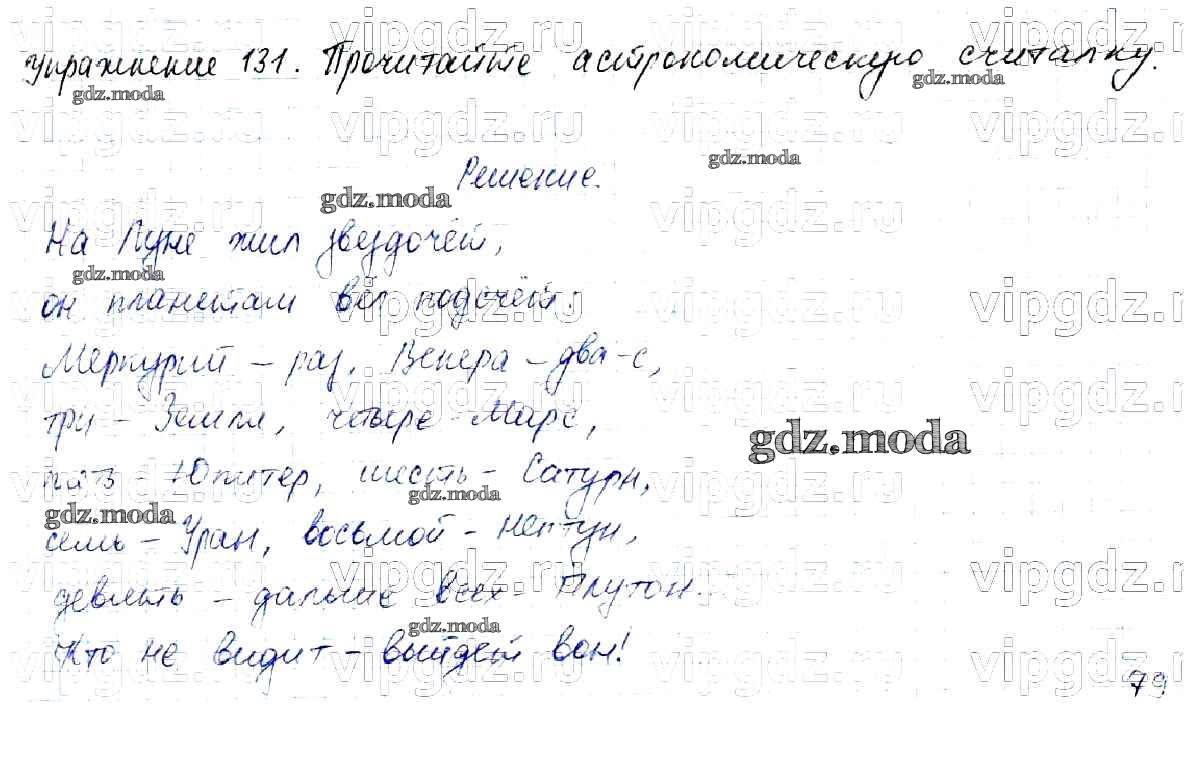 Упражнение 131. Прочитайте астрономическую считалку.
Решение.
На Луне жил звездочёт,
он планетам вёл подсчёт.
Меркурий – раз, Венера – два-с,
три – Земля, четыре – Марс,
пять – Юпитер, шесть – Сатурн,
семь – Уран, восьмой – Нептун,
девять – дальше всех – Плутон.
Кто не видит – выйдет вон!
79
gdz.moda
vipgdz.ru